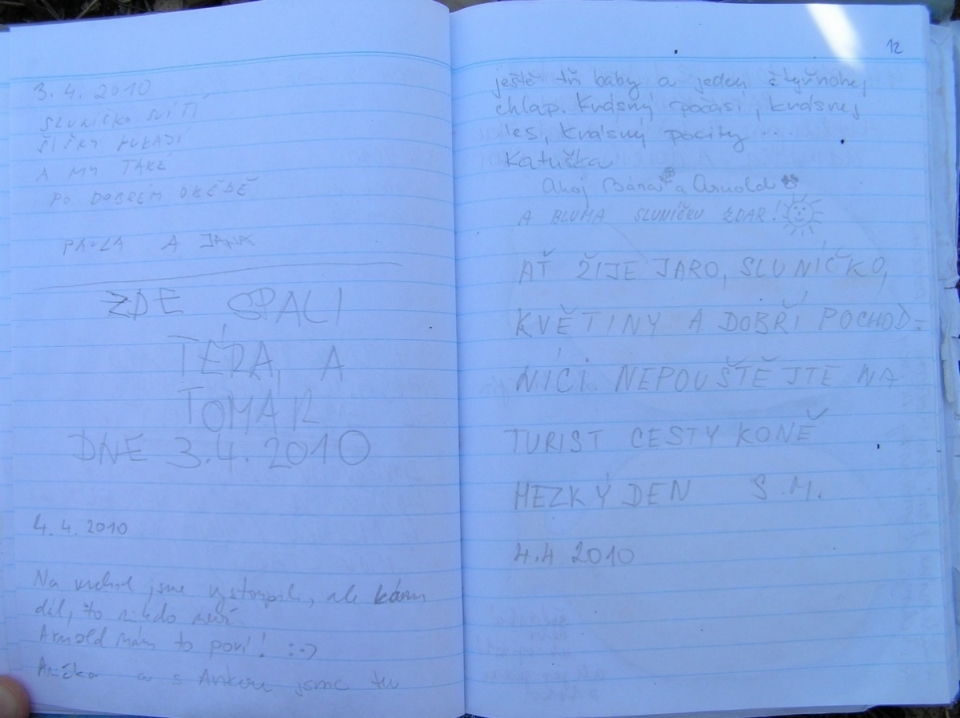 3.4.2010
SLUNÍČKO SVÍTÍ
ŠIŠKY PUKAJÍ
A MY TAKÉ
PO DOBRÉM OBĚDĚ
PAVLA A JANA
ZDE SPALI
TÉRA, A
TOMÁ
DNE 3.4.2010
4.4.2010
Na vrchol jsme vystoupili, ale kam
dál, to nikdo neví.
Arnold nám to poví! :->
Anička a s jsme tu
12
ještě tři báby a jeden čtyřnohej
chlap. Krásný počasí, krásnej
les, krásný pocity...
Katuška
Ahoj Bára a Arnold
A BLUMA SLUNÍČKU ZDAR!
AŤ ŽIJE JARO, SLUNÍČKO,
KVĚTINY A DOBŘÍ POCHOD=
NÍCI. NEPOUŠTĚJTE NA
TURIST CESTY KONĚ
HEZKÝ DEN S.M.
4.4 2010